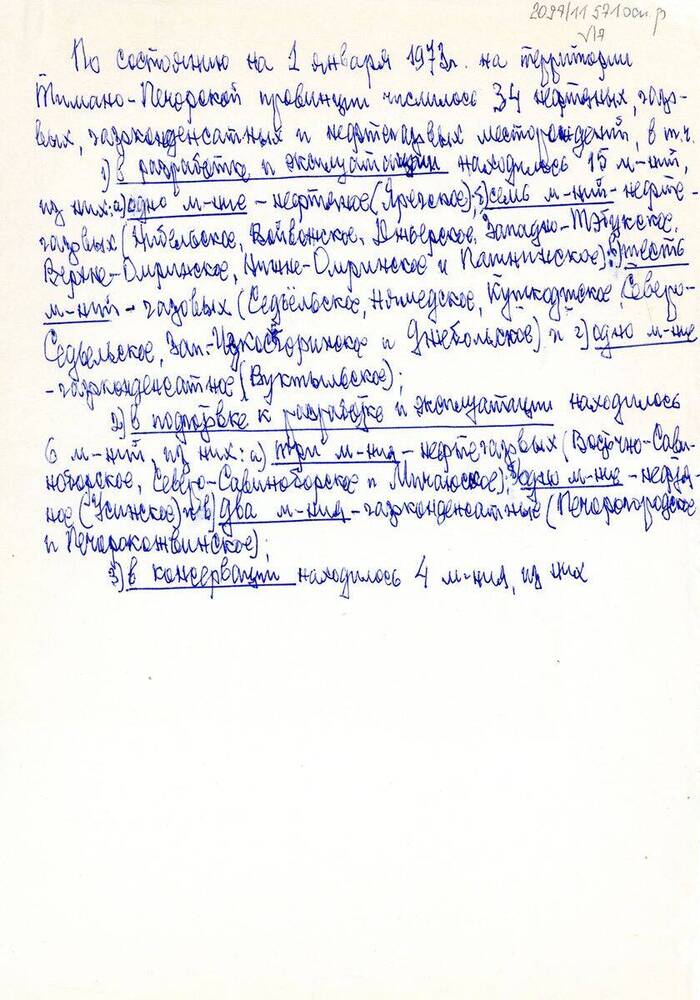 2099/11 571 осн. р
По состоянию на 1 января 1973г. на территории
Тимано-Печорской провинции числилось 34 нефтяных, газо-
вых, газоконденсатных и нефтегазовых месторождений, в т.ч.
1) в разработке и эксплуатации находилось 15 м-ний,
из них: а) одно м-ние - нефтяное (Ярегское); б) семь м-ний - нефте-
газовых (Нибельское, Войвожское, Джьерское, Западно-Тэбукское,
Верхне-Омринское, Нижне-Омринское и Пашнинское); в) шесть
м-ний - газовых (Седьельское, Нямедское, Кушкоджское, Северо-
Седьельское, Зап.-Изкосьгоринское и Джебольское) и г) одно м-ние
- газоконденсатное (Вуктыльское);
2) в подготовке к разработке и эксплуатации находилось
6 м-ний, из них: а) три м-ния - нефтегазовых (Восточно-Сави-
ноборское, Северо-Савиноборское и Мичаюское); б) одно м-ние - нефтя-
ное (Усинское) и в) два м-ния - газоконденсатные (Печорогородское
и Печорокожвинское);
3) в консервации находилось 4 м-ния, из них